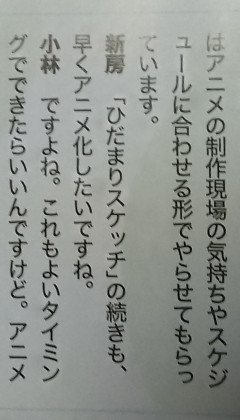 はアニメの制作現場の気持ちやスケジ
ュールに合わせる形でやらせてもらっ
ています。
新房　「ひだまりスケッチ」の続きも、
早くアニメ化したいですね。
小林　ですよね。これもよいタイミン
グでできたらいいんですけど。アニメ